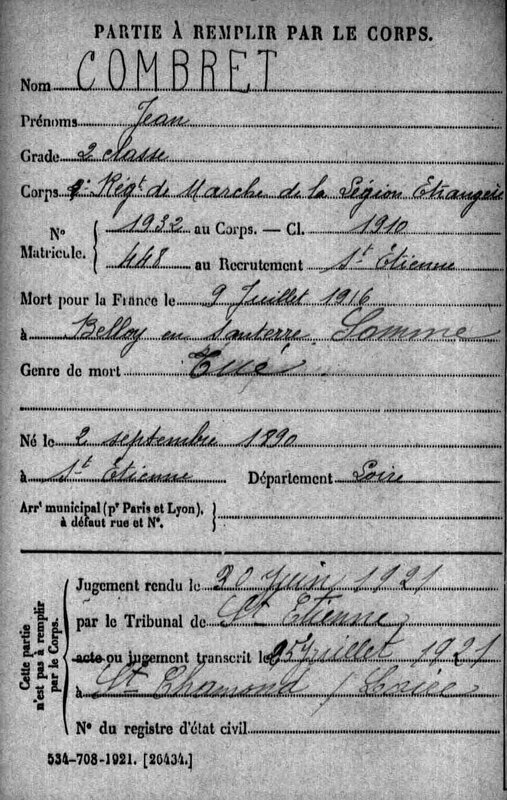 PARTIE À REMPLIR PAR LE CORPS.
Nom COMBRET
Prénoms Jean
Grade 2 classe
Corps Régt de Marche de la Légion Etrangère
N° Matricule. { 1932 au Corps. — Cl. 1910
448 au Recrutement St Étienne
Mort pour la France le 9 Juillet 1916
à Belloy en Santerre Somme
Genre de mort Tué
Né le 2 septembre 1890
à St Étienne Département Loire
Arrt municipal (pr Paris et Lyon), à défaut rue et N°. }
Cette partie n'est pas à remplir par le Corps.
Jugement rendu le 20 Juin 1921
par le Tribunal de St Etienne
acte ou jugement transcrit le 25 Juillet 1921
à St Chamond / Loire
N° du registre d'état civil
534-708-1921. [26434.]